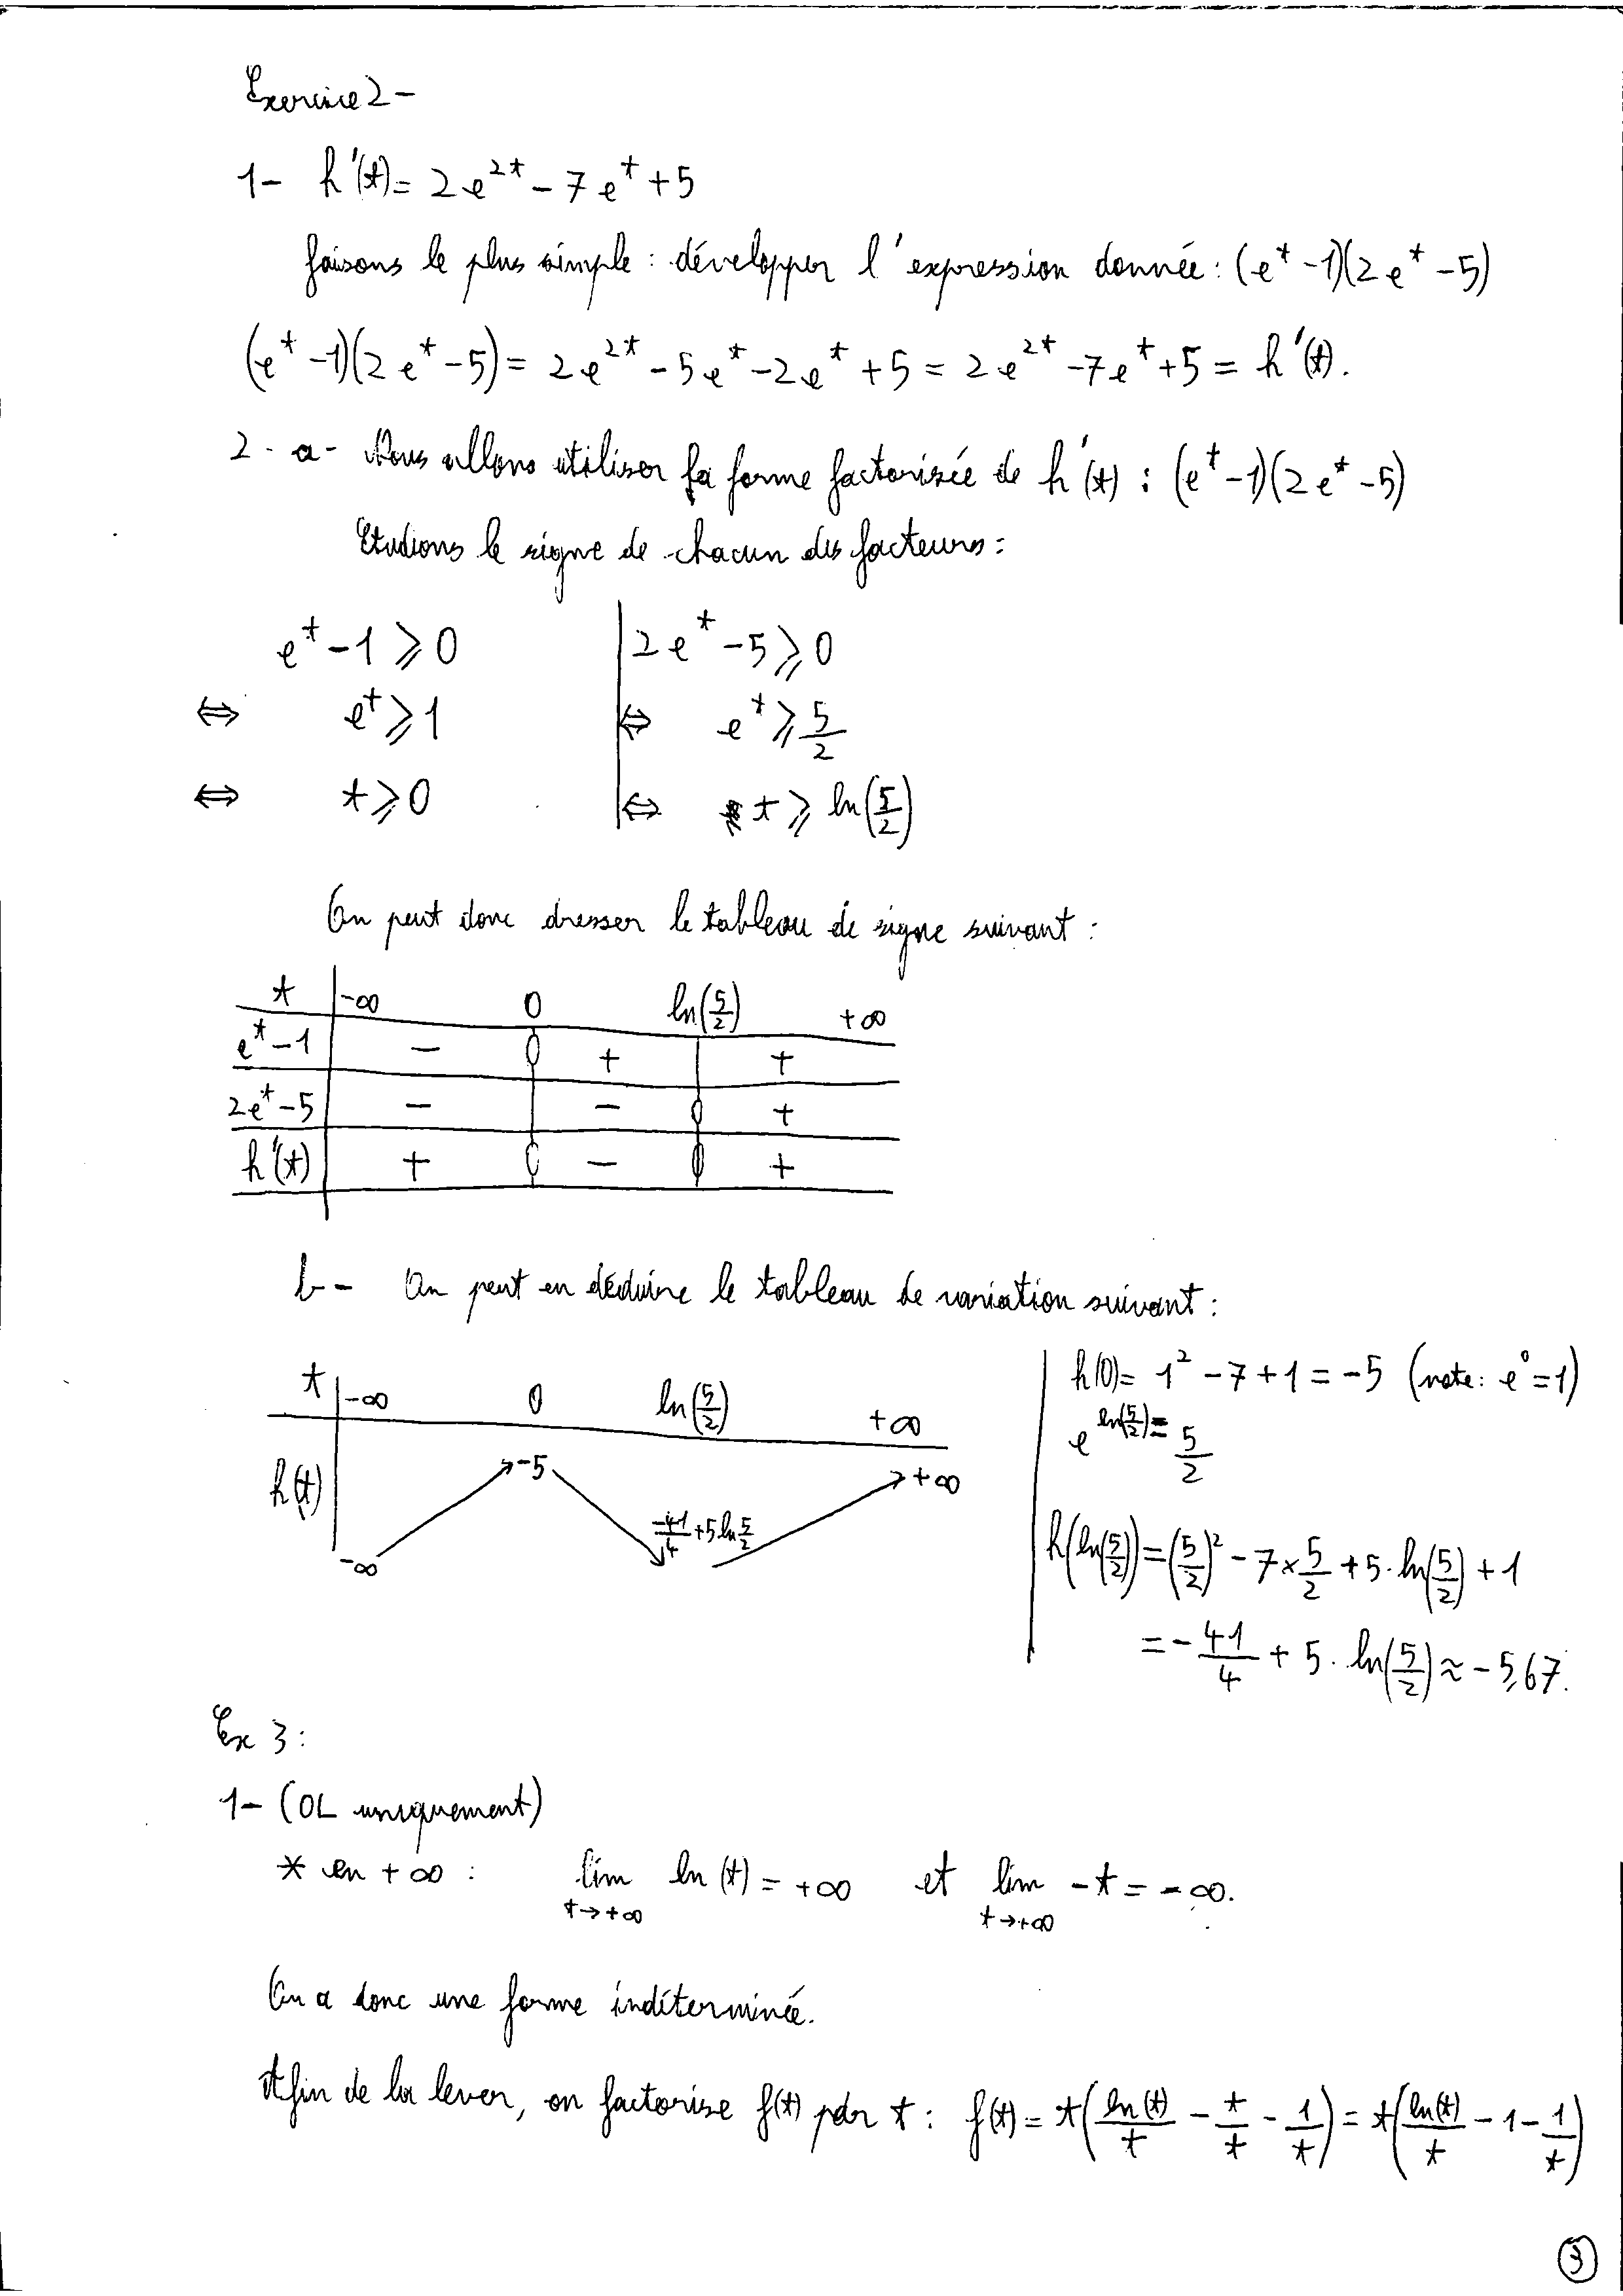 Exercice 2 -
1- h'(t) = 2e^{2t} - 7e^t + 5
faisons le plus simple : développer l'expression donnée : (e^t - 1)(2e^t - 5)
(e^t - 1)(2e^t - 5) = 2e^{2t} - 5e^t - 2e^t + 5 = 2e^{2t} - 7e^t + 5 = h'(t).
2 - a - Nous allons utiliser la forme factorisée de h'(t) : (e^t - 1)(2e^t - 5)
Etudions le signe de chacun des facteurs :
e^t - 1 ⩾ 0 | 2e^t - 5 ⩾ 0
⇔ e^t ⩾ 1 | ⇔ e^t ⩾ 5/2
⇔ t ⩾ 0 | ⇔ t ⩾ ln(5/2)
On peut donc dresser le tableau de signe suivant :
t | -∞ 0 ln(5/2) +∞
e^t - 1 | - 0 + | +
2e^t - 5 | - | - 0 +
h'(t) | + 0 - 0 +
b - On peut en déduire le tableau de variation suivant :
t | -∞ 0 ln(5/2) +∞
h(t) | -∞ ↗ -5 ↘ -41/4 + 5 ln 5/2 ↗ +∞
h(0) = 1² - 7 + 1 = -5 (note : e^0 = 1)
e^{ln(5/2)} = 5/2
h(ln(5/2)) = (5/2)² - 7 × 5/2 + 5 . ln(5/2) + 1
= - 41/4 + 5 . ln(5/2) ≈ - 5,67.
Ex 3 :
1- (OL uniquement)
* en +∞ : lim_{t→+∞} ln(t) = +∞ et lim_{t→+∞} -t = -∞.
On a donc une forme indéterminée.
Afin de la lever, on factorise f(t) par t : f(t) = t(ln(t)/t - t/t - 1/t) = t(ln(t)/t - 1 - 1/t)
3